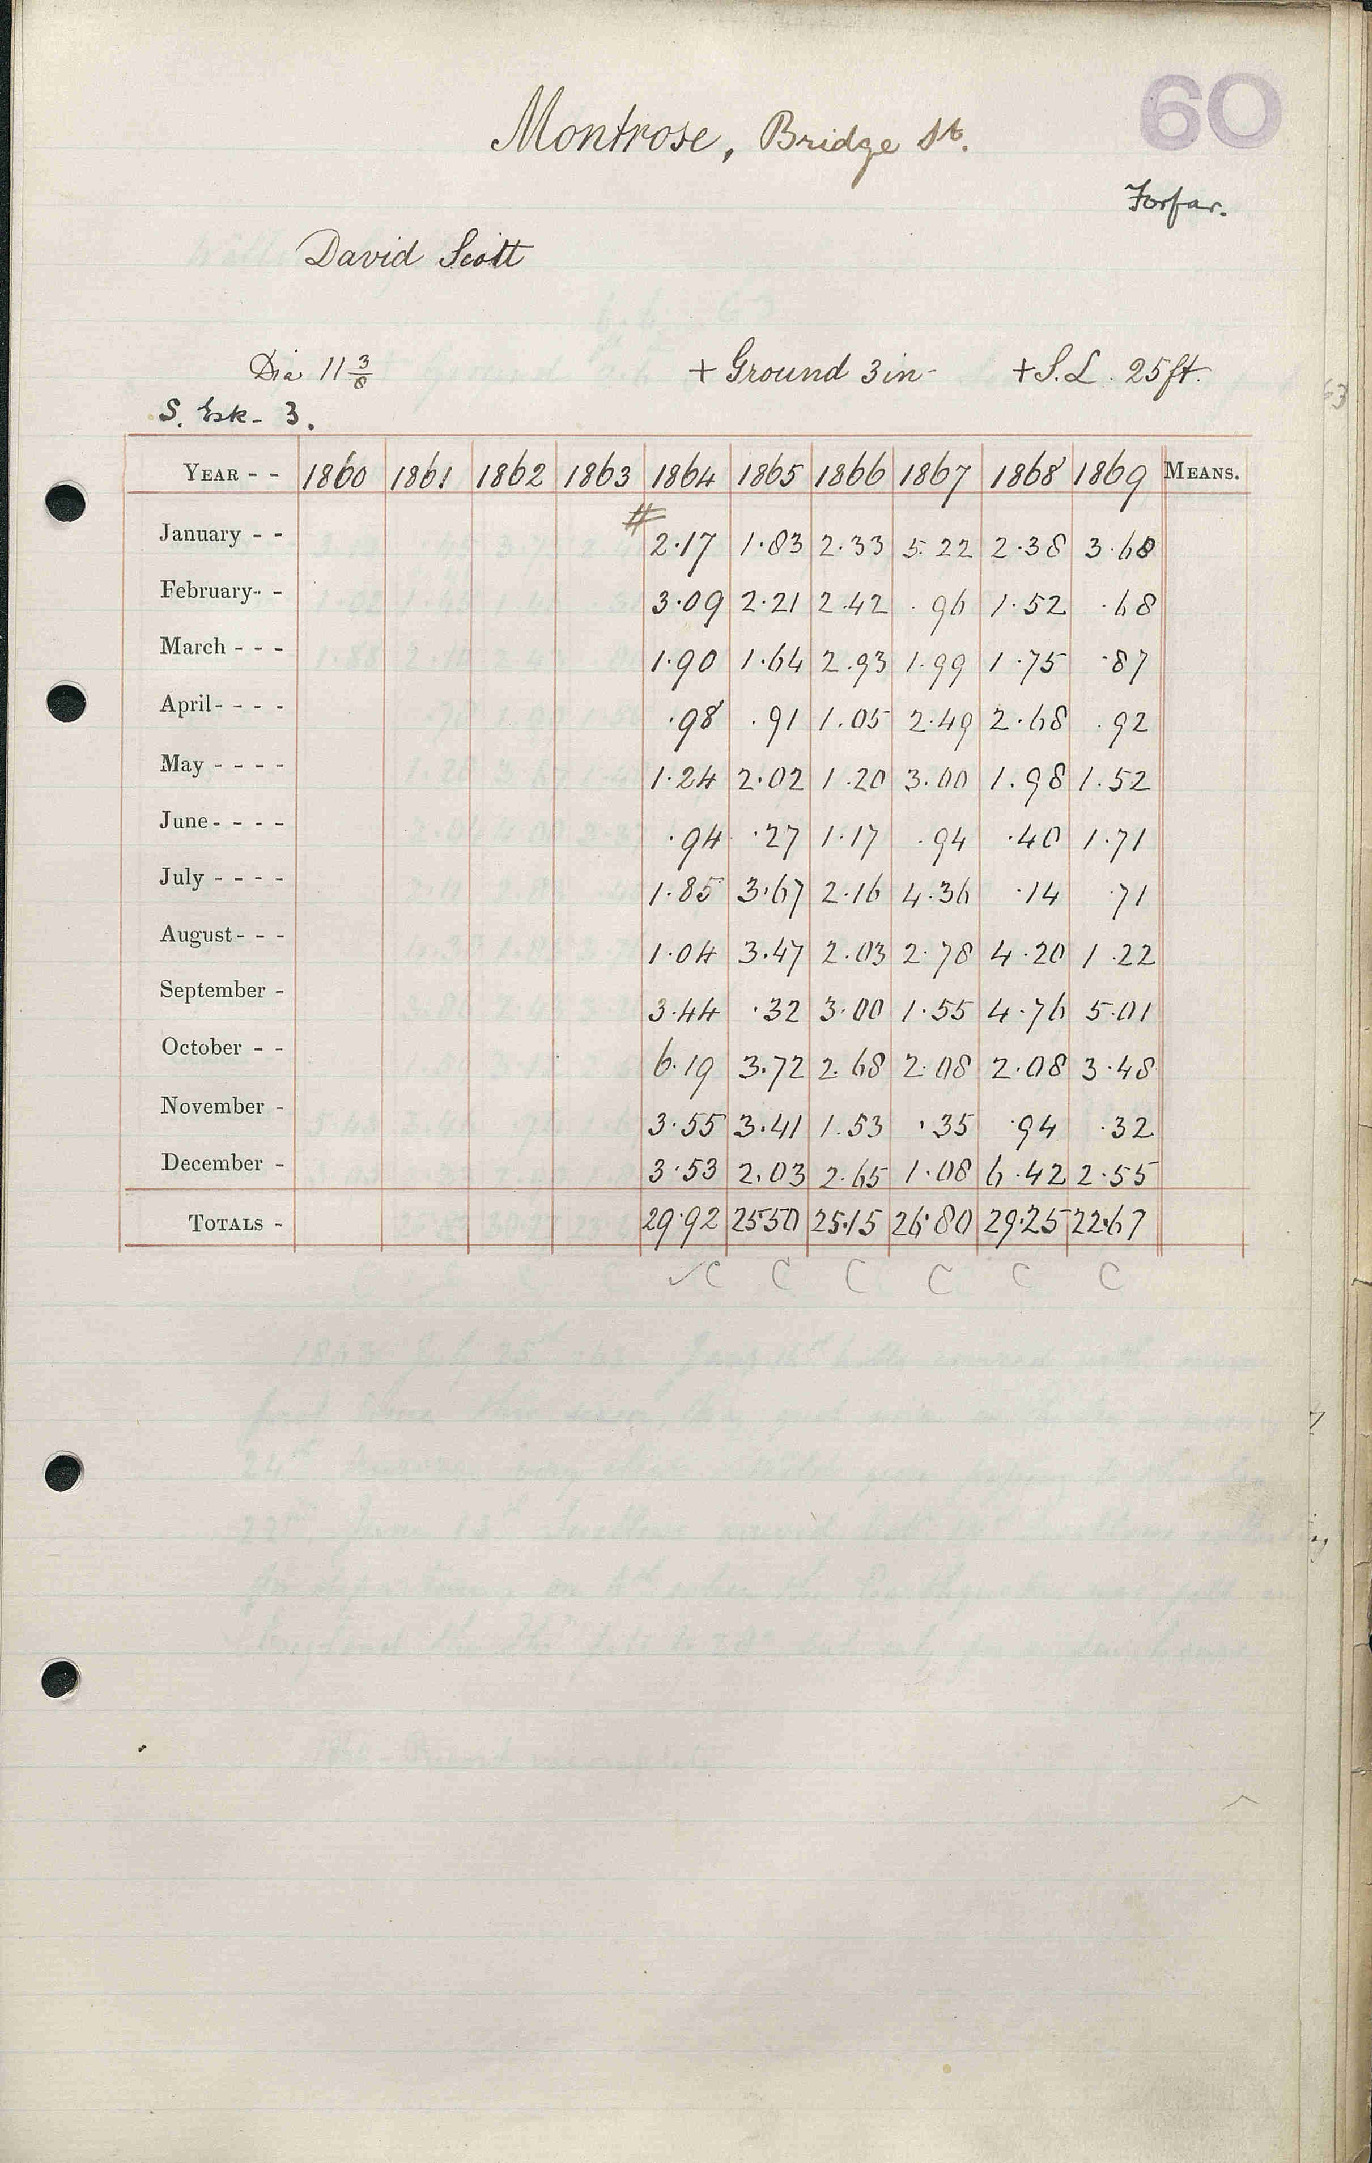 60
Montrose, Bridge St.
Forfar.
David Scott
Dia 11 3/8 + Ground 3 in - + S.L. 25 ft.
S. Esk - 3.
YEAR - - 1860 1861 1862 1863 1864 1865 1866 1867 1868 1869 MEANS.
#
January - - 2.17 1.83 2.33 5.22 2.38 3.68
February - - 3.09 2.21 2.42 .96 1.52 .68
March - - - 1.90 1.64 2.93 1.99 1.75 .87
April - - - - .98 .91 1.05 2.49 2.68 .92
May - - - - 1.24 2.02 1.20 3.00 1.98 1.52
June - - - - .94 .27 1.17 .94 .40 1.71
July - - - - 1.85 3.67 2.16 4.36 .14 .71
August - - - 1.04 3.47 2.03 2.78 4.20 1.22
September - 3.44 .32 3.00 1.55 4.76 5.01
October - - 6.19 3.72 2.68 2.08 2.08 3.48
November - 3.55 3.41 1.53 .35 .94 .32
December - 3.53 2.03 2.65 1.08 6.42 2.55
TOTALS - 29.92 25.50 25.15 26.80 29.25 22.67
✓C C C C C C